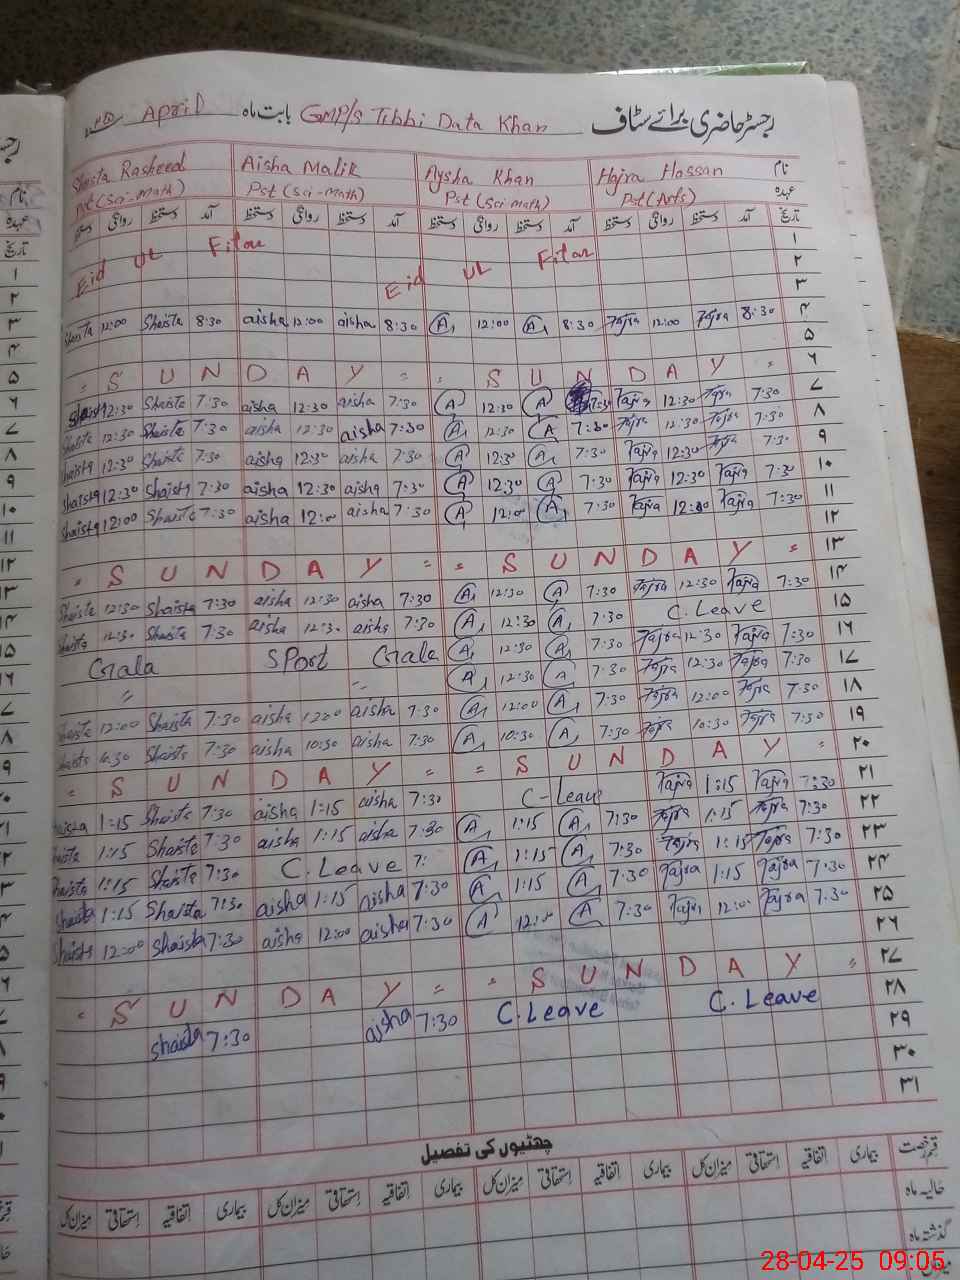 رجسٹر حاضری برائے سٹاف GMP/S Tibbi Data Khan بابت ماہ April
نام Hajra Hassan Aysha Khan Aisha Malik Shaista Rasheed
عہدہ Pst (Arts) Pst (Sci math) Pst (Sci-math) Pst (Sci-math)
تاریخ آمد دستخط روانگی دستخط آمد دستخط روانگی دستخط آمد دستخط روانگی دستخط آمد دستخط روانگی دستخط
۱
Eid UL Fitar Eid UL Fitar ۲
۳
Shaista 12:00 Shaista 8:30 aisha 12:00 aisha 8:30 A 12:00 A 8:30 Tajra 12:00 Tajra 8:30 ۴
۵
= S U N D A Y = = S U N D A Y = ۶
Shaista 12:30 Shaista 7:30 aisha 12:30 aisha 7:30 A 12:30 A 7:30 Tajra 12:30 Tajra 7:30 ۷
Shaista 12:30 Shaista 7:30 aisha 12:30 aisha 7:30 A 12:30 A 7:30 Tajra 12:30 Tajra 7:30 ۸
Shaista 12:30 Shaista 7:30 aisha 12:30 aisha 7:30 A 12:30 A 7:30 Tajra 12:30 Tajra 7:30 ۹
Shaista 12:30 Shaista 7:30 aisha 12:30 aisha 7:30 A 12:30 A 7:30 Tajra 12:30 Tajra 7:30 ۱۰
Shaista 12:00 Shaista 7:30 aisha 12:00 aisha 7:30 A 12:00 A 7:30 Tajra 12:00 Tajra 7:30 ۱۱
۱۲
= S U N D A Y = = S U N D A Y = ۱۳
Shaista 12:30 Shaista 7:30 aisha 12:30 aisha 7:30 A 12:30 A 7:30 Tajra 12:30 Tajra 7:30 ۱۴
Shaista 12:30 Shaista 7:30 aisha 12:30 aisha 7:30 A 12:30 A 7:30 C.Leave ۱۵
Gala SPort Gala A 12:30 A 7:30 Tajra 12:30 Tajra 7:30 ۱۶
" " A 12:30 A 7:30 Tajra 12:30 Tajra 7:30 ۱۷
Shaista 12:00 Shaista 7:30 aisha 12:00 aisha 7:30 A 12:00 A 7:30 Tajra 12:00 Tajra 7:30 ۱۸
Shaista 10:30 Shaista 7:30 aisha 10:30 aisha 7:30 A 10:30 A 7:30 Tajra 10:30 Tajra 7:30 ۱۹
= S U N D A Y = = S U N D A Y = ۲۰
Shaista 1:15 Shaista 7:30 aisha 1:15 aisha 7:30 C-Leave Tajra 1:15 Tajra 7:30 ۲۱
Shaista 1:15 Shaista 7:30 aisha 1:15 aisha 7:30 A 1:15 A 7:30 Tajra 1:15 Tajra 7:30 ۲۲
Shaista 1:15 Shaista 7:30 C.Leave 7: A 1:15 A 7:30 Tajra 1:15 Tajra 7:30 ۲۳
Shaista 1:15 Shaista 7:30 aisha 1:15 aisha 7:30 A 1:15 A 7:30 Tajra 1:15 Tajra 7:30 ۲۴
Shaista 12:00 Shaista 7:30 aisha 12:00 aisha 7:30 A 12:00 A 7:30 Tajra 12:00 Tajra 7:30 ۲۵
۲۶
= S U N D A Y = = S U N D A Y = ۲۷
Shaista 7:30 aisha 7:30 C.Leave C.Leave ۲۸
۲۹
۳۰
۳۱
چھٹیوں کی تفصیل
قسم رخصت بیماری اتفاقیہ استحقاقی میزان کل بیماری اتفاقیہ استحقاقی میزان کل بیماری اتفاقیہ استحقاقی میزان کل بیماری اتفاقیہ استحقاقی میزان کل
حالیہ ماہ
گذشتہ ماہ
28-04-25 09:05